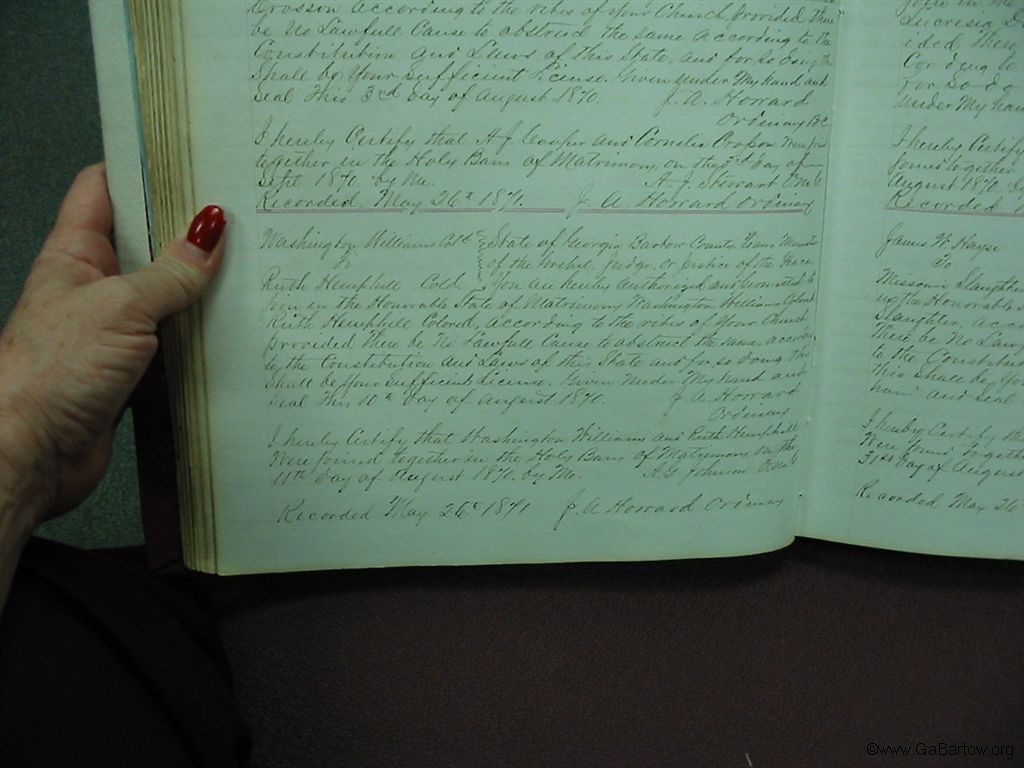 Crosson according to the rites of your Church, provided there
be No Lawfull Cause to abstruct the same according to the
Constitution and Laws of this State, and for so doing this
Shall be your sufficient License. Given under My hand and
Seal This 3rd day of August 1870. J. A. Howard
Ordinary BC
I hereby Certify that H. J. Cooper and Cornelia were
together in the Holy Bans of Matrimony on the day of
Sept 1870 by Me. H. J. Stewart
Recorded May 26th 1871. J. A. Howard Ordinary
Washington Williams Cold State of Georgia Bartow County To any Minister
To of the Judge, or Justice of the Peace
Ruth Hemphill Cold You are hereby authorized and to
Join in the Honorable State of Matrimony Washington Williams Colord
Ruth Hemphill Colored, according to the rites of your Church
provided there be No Lawfull Cause to abstruct the same, according
to the Constitution and Laws of this State and for so doing this
Shall be your sufficient License. Given under My hand and
Seal this 10th day of August 1870. J. A. Howard
Ordinary
I hereby Certify that Washington Williams and Ruth Hemphill
Were Joined together in the Holy Bans of Matrimony on the
11th day of August 1870 by Me. A. G. Johnson
Recorded May 26th 1871 J. A. Howard Ordinary
join in the
Lucresia
ided There
Cording to
for So do
under My han
I hereby Certify
Joined together
August 1870
Recorded
James W. Hayse
To
Missouri Slaughter
the Honorable
Slaughter, acco
There be No Law
to the Constitut
this Shall be you
hand and Seal
I hereby Certify th
Were Joined together
31st day of August
Recorded May 26
©www.GaBartow.org